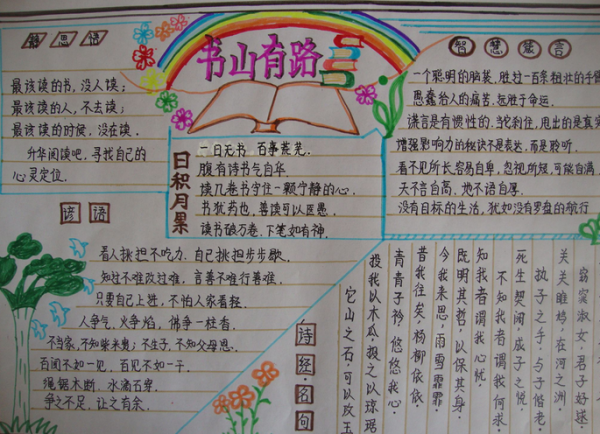 书山有路
思语
最该读的书,没人读;
最该读的人,不去读;
最该读的时候,没在读.
升华阅读吧,寻找自己的
心灵定位.
日积月累
一日无书 百事荒芜.
腹有诗书气自华.
读几卷书守住一颗宁静的心.
书犹药也,善读可以医愚.
读书破万卷,下笔如有神.
智慧箴言
一个聪明的脑袋,胜过一百条粗壮的手
愚蠢给人的痛苦,远胜于命运.
谎言是有惯性的,当它刹住,甩出的是真实
增强影响力的秘诀不是表达,而是聆听.
看不见所长,容易自卑,忽视所短,可能自满
天不言自高、地不语自厚.
没有目标的生活,犹如没有罗盘的航行
谚语
看人挑担不吃力,自己挑担步步歇.
知过不难改过难,言善不难行善难.
只要自己上进,不怕人家看轻.
人争气,火争焰,佛争一柱香.
不当家,不知柴米贵;不生子,不知父母恩.
百闻不如一见,百见不如一干.
绳锯木断,水滴石穿.
争之不足,让之有余.
诗经·名句
窈窕淑女,君子好逑.
关关雎鸠,在河之洲.
执子之手,与子偕老.
死生契阔,成子之悦,
不知我者谓我何求
知我者谓我心忧,
既明其哲,以保其身.
今我来思,雨雪霏霏
昔我往矣,杨柳依依.
青青子衿,悠悠我心.
投我以木瓜,报之以琼琚
它山之石,可以攻玉